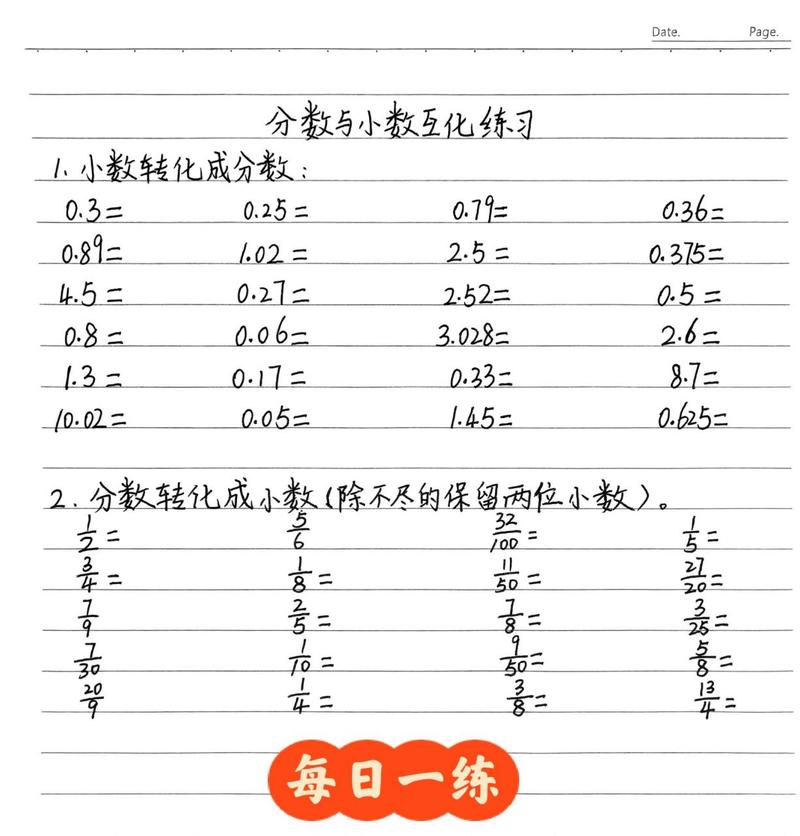 Date. Page.
分数与小数互化练习
1. 小数转化成分数：
0.3= 0.25= 0.79= 0.36=
0.89= 1.02= 2.5= 0.375=
4.5= 0.27= 2.52= 0.5=
0.8= 0.06= 3.028= 2.6=
1.3= 0.17= 0.33= 8.7=
10.02= 0.05= 1.45= 0.625=
2. 分数转化成小数(除不尽的保留两位小数)。
1/2= 5/6 32/100= 1/5=
3/4= 1/8= 11/50= 27/20=
7/9 2/5= 7/8= 3/25=
7/30 1/10= 9/50= 5/8=
20/9 1/4= 3/8= 13/4=
每日一练